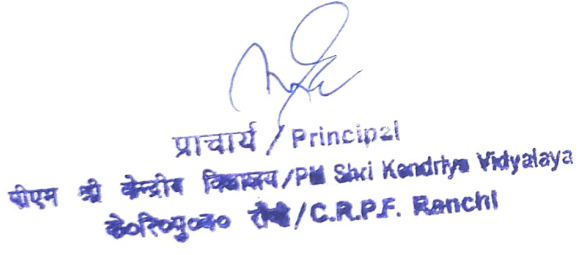 प्राचार्य / Principal
पीएम श्री केन्द्रीय विद्यालय/PM Shri Kendriya Vidyalaya
के०रि०पु०ब० राँची/C.R.P.F. Ranchi